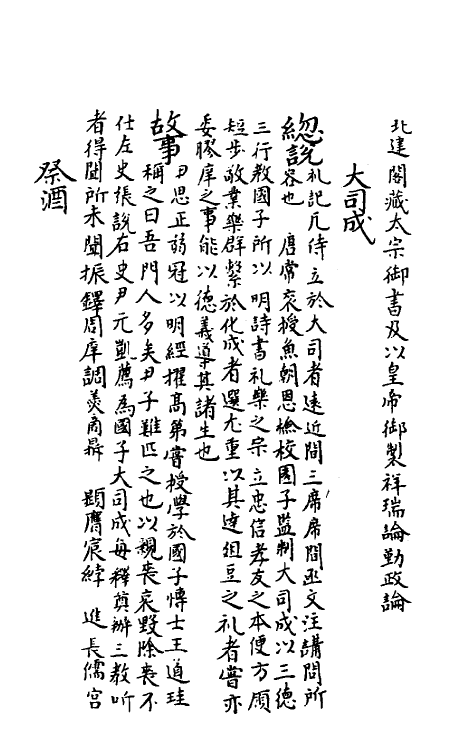 北建閣藏太宗御書及以皇帝御製祥瑞論勤政論
大司成
總說 礼記凡侍立於大司者遠近間三席席間函丈注講問所
容也 唐常袞授魚朝恩檢校國子監制大司成以三德
三行教國子所以明詩書礼樂之宗立忠信孝友之本使方領
矩步敬業樂群繫於化成者選尤重以其達俎豆之礼者嘗亦
委膠庠之事能以德義導其諸生也
故事 尹思正弱冠以明經擢髙第嘗授學於國子博士王道珪
稱之曰吾門人多矣尹子難匹之也以親喪哀毀除喪不
仕左史張說右史尹元凱薦為國子大司成每釋奠辦三教听
者得聞所未聞 振鐸周庠調羹商鼎 顕膺宸綍 進長儒宮
祭酒